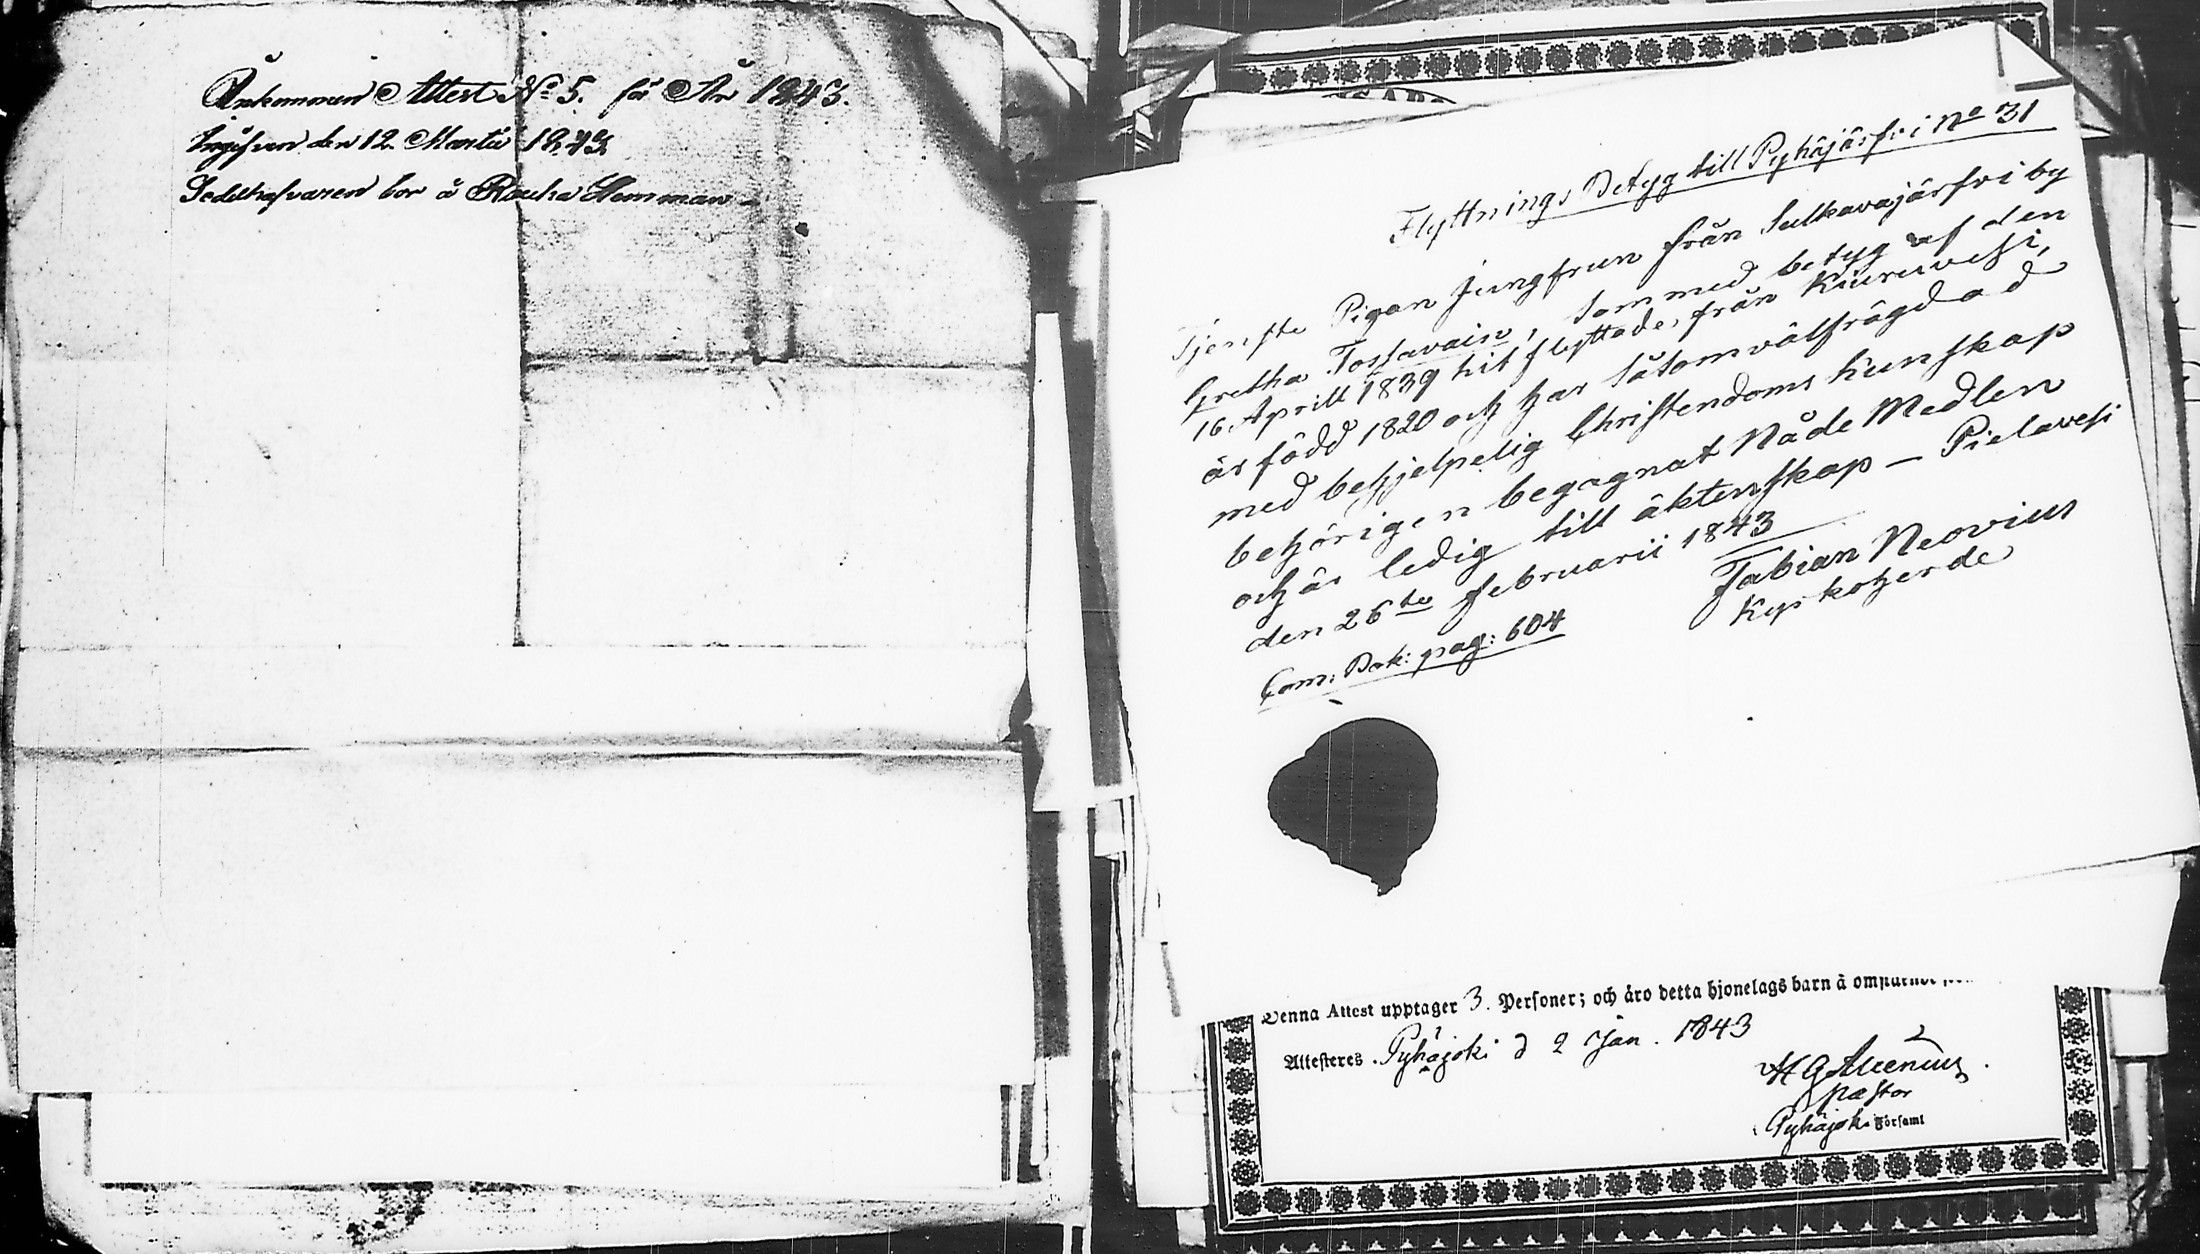 Ankommen Attest No 5. få År 1843.
Ingifven den 12 Martii 1843
Sedelhafvaren bor å Rauha Hemman
Flyttnings Betyg till Pyhäjärfvi No 31
Tjenste Pigan Jungfrun från Sulkavajärfvi by
Gretha Tossavain, som med betyg af den
16 Aprill 1839 hit flyttade, från Kiuruvesi,
är född 1820 och har såsom välfrägdad
med behjelpelig Christendoms kunskap
behörigen begagnat Nåde Medlen
och är ledig till äktenskap — Pielavesi
den 26te februarii 1843
Fabian Neovius
Kyrkoherde
Com: Bok: pag: 604
Denna Attest upptager 3. Personer; och äro detta hjonelags barn å
Attesteres Pyhäjoki d 2 Jan. 1843
Pastor
Pyhäjoki Församl